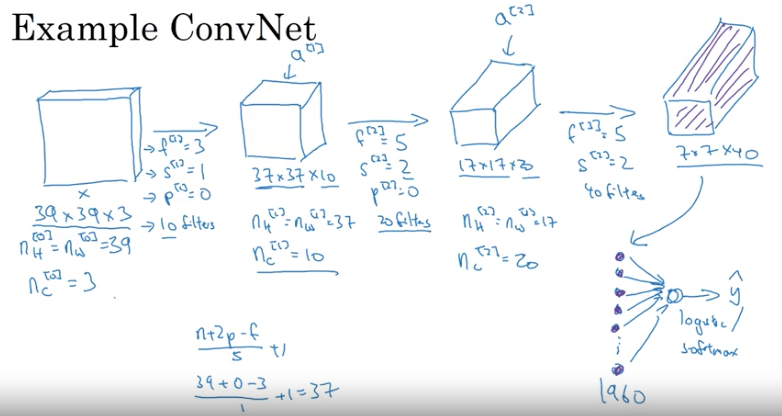 Example ConvNet
a^[1]
a^[2]
x
39 x 39 x 3
n_H^[0] = n_W^[0] = 39
n_C^[0] = 3
→ f^[1] = 3
→ s^[1] = 1
→ p^[1] = 0
→ 10 filters
37 x 37 x 10
n_H^[1] = n_W^[1] = 37
n_C^[1] = 10
f^[2] = 5
s^[2] = 2
p^[2] = 0
20 filters
17 x 17 x 20
n_H^[2] = n_W^[2] = 17
n_C^[2] = 20
f^[3] = 5
s^[3] = 2
40 filters
7 x 7 x 40
ŷ
logistic /
softmax
1960
(n + 2p - f) / s + 1
(39 + 0 - 3) / 1 + 1 = 37